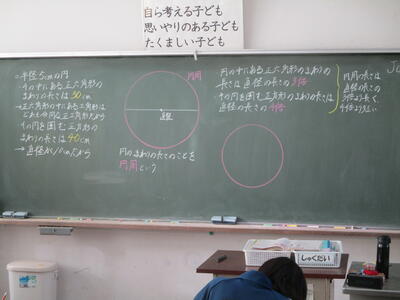 自ら考える子ども
思いやりのある子ども
たくましい子ども
○半径5cmの円
・その中にある正六角形の
まわりの長さは30cm
→正六角形の中にある三角形は
どれも合同な正三角形だから
・その円を囲む正方形の
まわりの長さは40cm
→直径が10cmだから
円周
直径
円のまわりの長さのことを
円周という
円の中にある正六角形のまわりの
長さは直径の長さの3倍
その円を囲む正方形のまわりの長さは
直径の長さの4倍
円周の長さは
直径の長さの
3倍より長く、
4倍より短い
しゅくだい